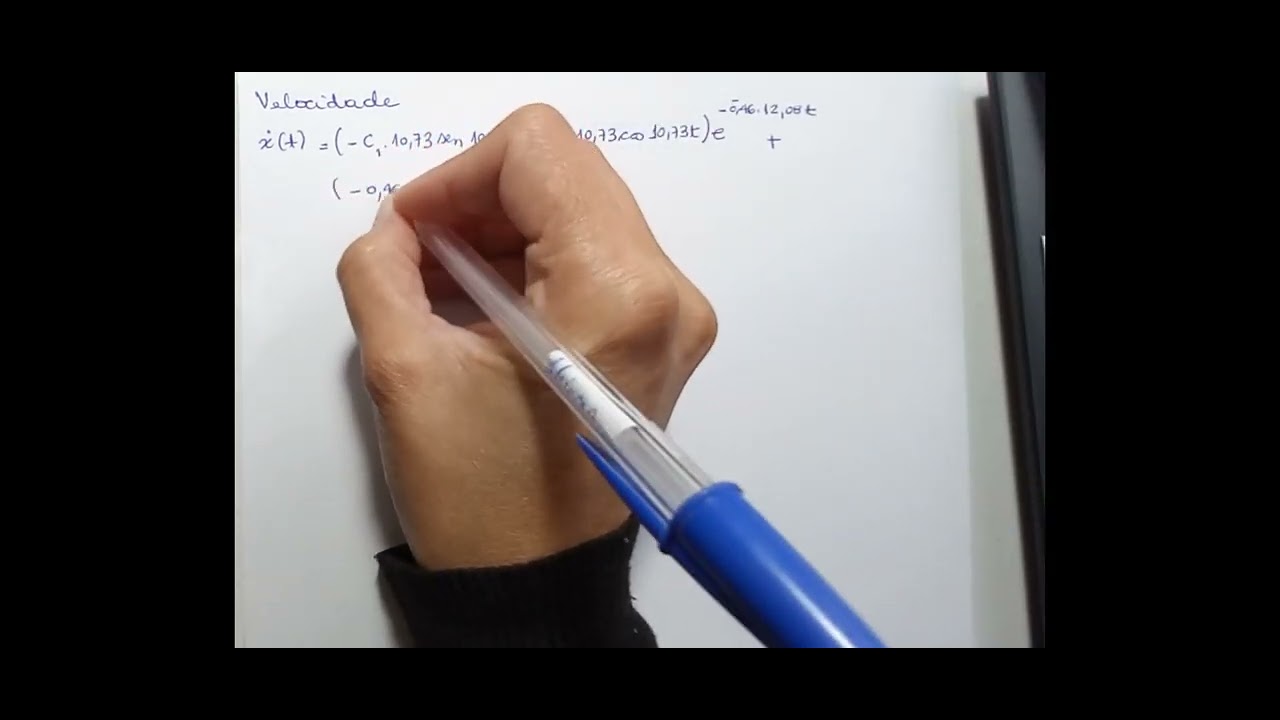 Velocidade
ẋ(t) = (-C₁.10,73 sen 10 10,73 cos 10,73t) e^-0,46.12,08t +
(-0,46